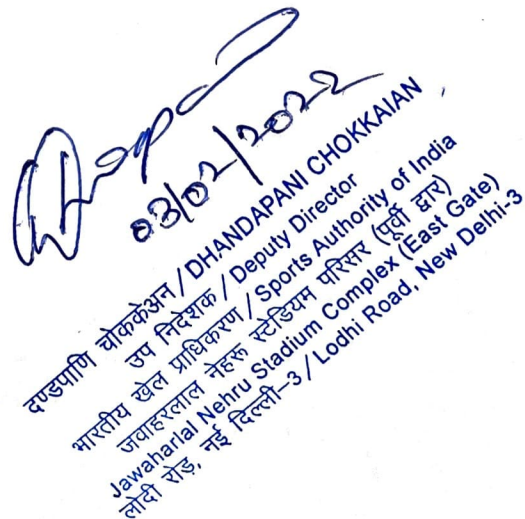 03/02/2022
दण्डपाणि चोककेअन / DHANDAPANI CHOKKAIAN
उप निदेशक / Deputy Director
भारतीय खेल प्राधिकरण / Sports Authority of India
जवाहरलाल नेहरू स्टेडियम परिसर (पूर्वी द्वार)
Jawaharlal Nehru Stadium Complex (East Gate)
लोदी रोड़, नई दिल्ली–3 / Lodhi Road, New Delhi-3